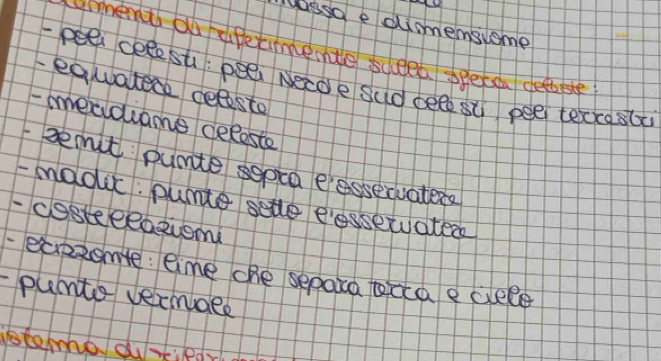 massa e dimensione
elementi di riferimento sulla sfera celeste:
- poli celesti: poli Nord e Sud celesti, poli terrestri
- equatore celeste
- meridiano celeste
- zenit: punto sopra l'osservatore
- nadir: punto sotto l'osservatore
- costellazioni
- orizzonte: line che separa terra e cielo
- punto vernale
sistema di rifer